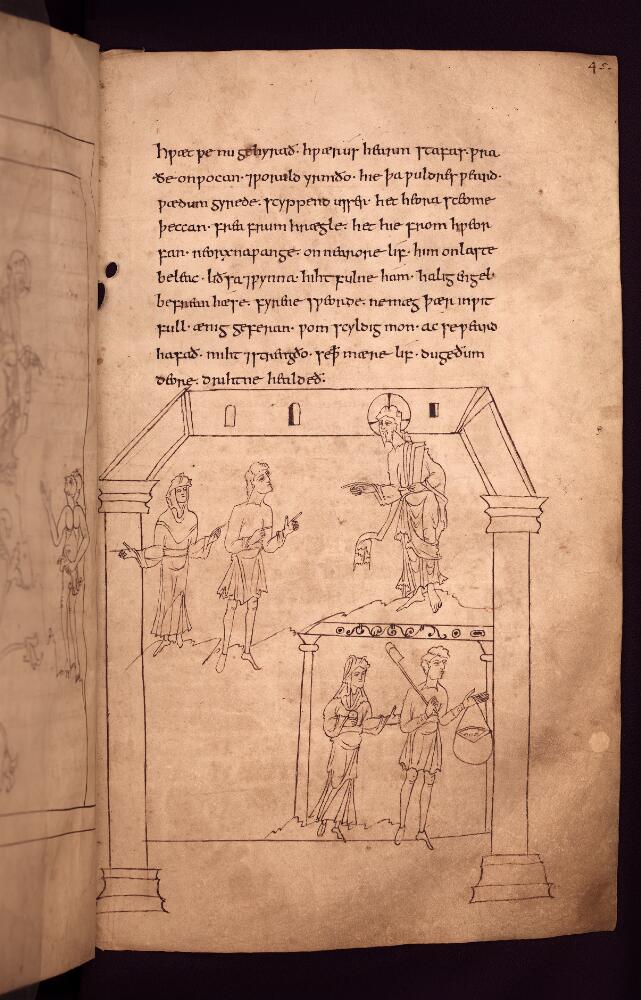 45.
hƿæt ƿe nu gehyrað· hƿær us hearm stafas· ƿra
ðe onƿocan· ⁊ ƿoruld yrmðo· hie þa ƿuldres ƿeard·
ƿædum gyrede· scyppend usser· het heora sceome
þeccan· frea frum hrægle· het hie from hƿeor
fan· neorxna ƿange· on nearore lif· him on laste
beleac· liðsa ⁊ ƿynna· hiht fulne ham· halig engel·
be frean hæse· fyrene sƿeorde· ne mæg þær inƿit
full· ænig geferan· ƿom scyldig mon· ac se ƿeard
hafað· miht ⁊ strengðo· se þ̄ mære lif· dugeðum
deore· drihtne healdeð·